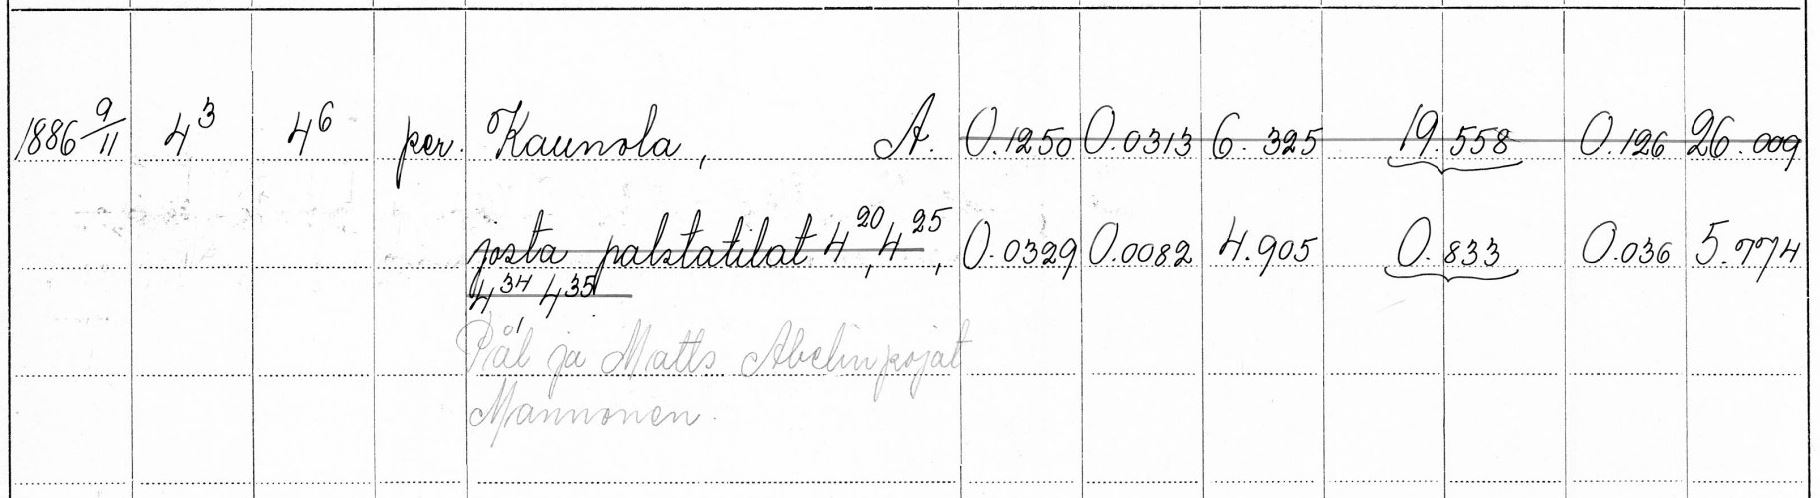 1886 9/11 4³ 4⁶ per. Kaunola, A. 0.1250 0.0313 6.325 19.558 0.126 26.009
josta palstatilat 4²⁰, 4²⁵, 0.0329 0.0082 4.905 0.833 0.036 5.774
4³⁴ 4³⁵
Pål ja Matts Abelinpojat
Mannonen.